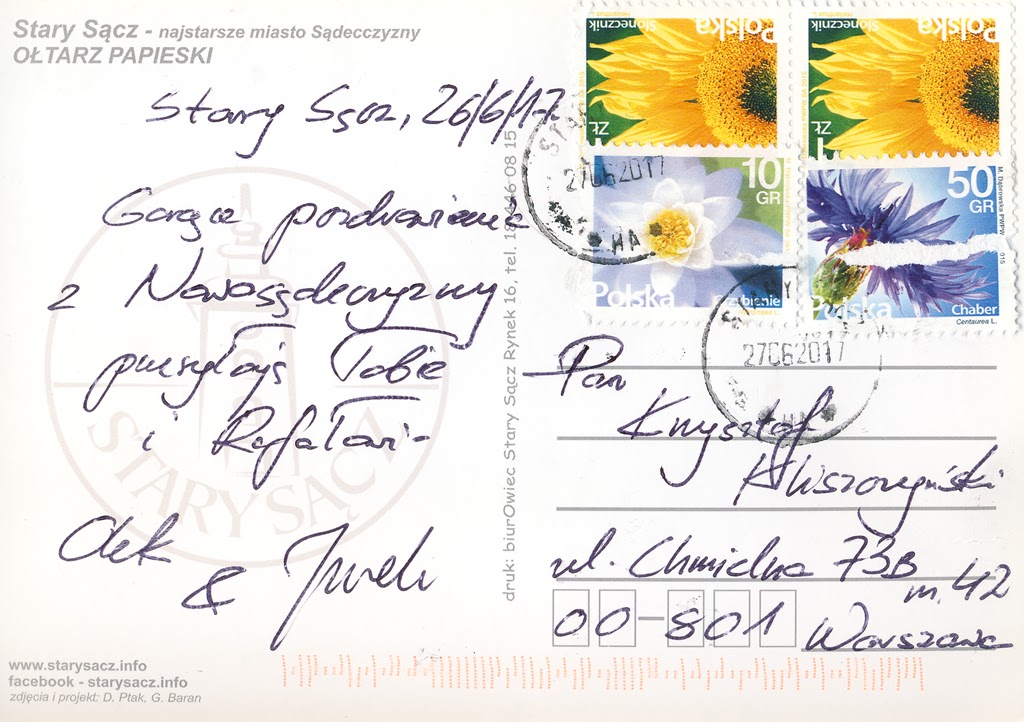 Stary Sącz - najstarsze miasto Sądecczyzny
OŁTARZ PAPIESKI
Stary Sącz, 26/6/17
Gorące pozdrowienia
z Nowosądecczyzny
przesyłają Tobie
i Rafałowi-
Olek
& Jurek
STARY SĄCZ
www.starysacz.info
facebook - starysacz.info
zdjęcia i projekt: D. Ptak, G. Baran
druk: biurOwiec Stary Sącz Rynek 16, tel. 18 446 08 15
Słonecznik
Polska
ZŁ
Słonecznik
Polska
ZŁ
10
GR
Polska
50
GR
M. Dąbrowska PWPW
Polska
Chaber
Centaurea L.
27062017
27062017
Pan
Krzysztof
ul. Chmielna 73B
m. 42
00-801 Warszawa